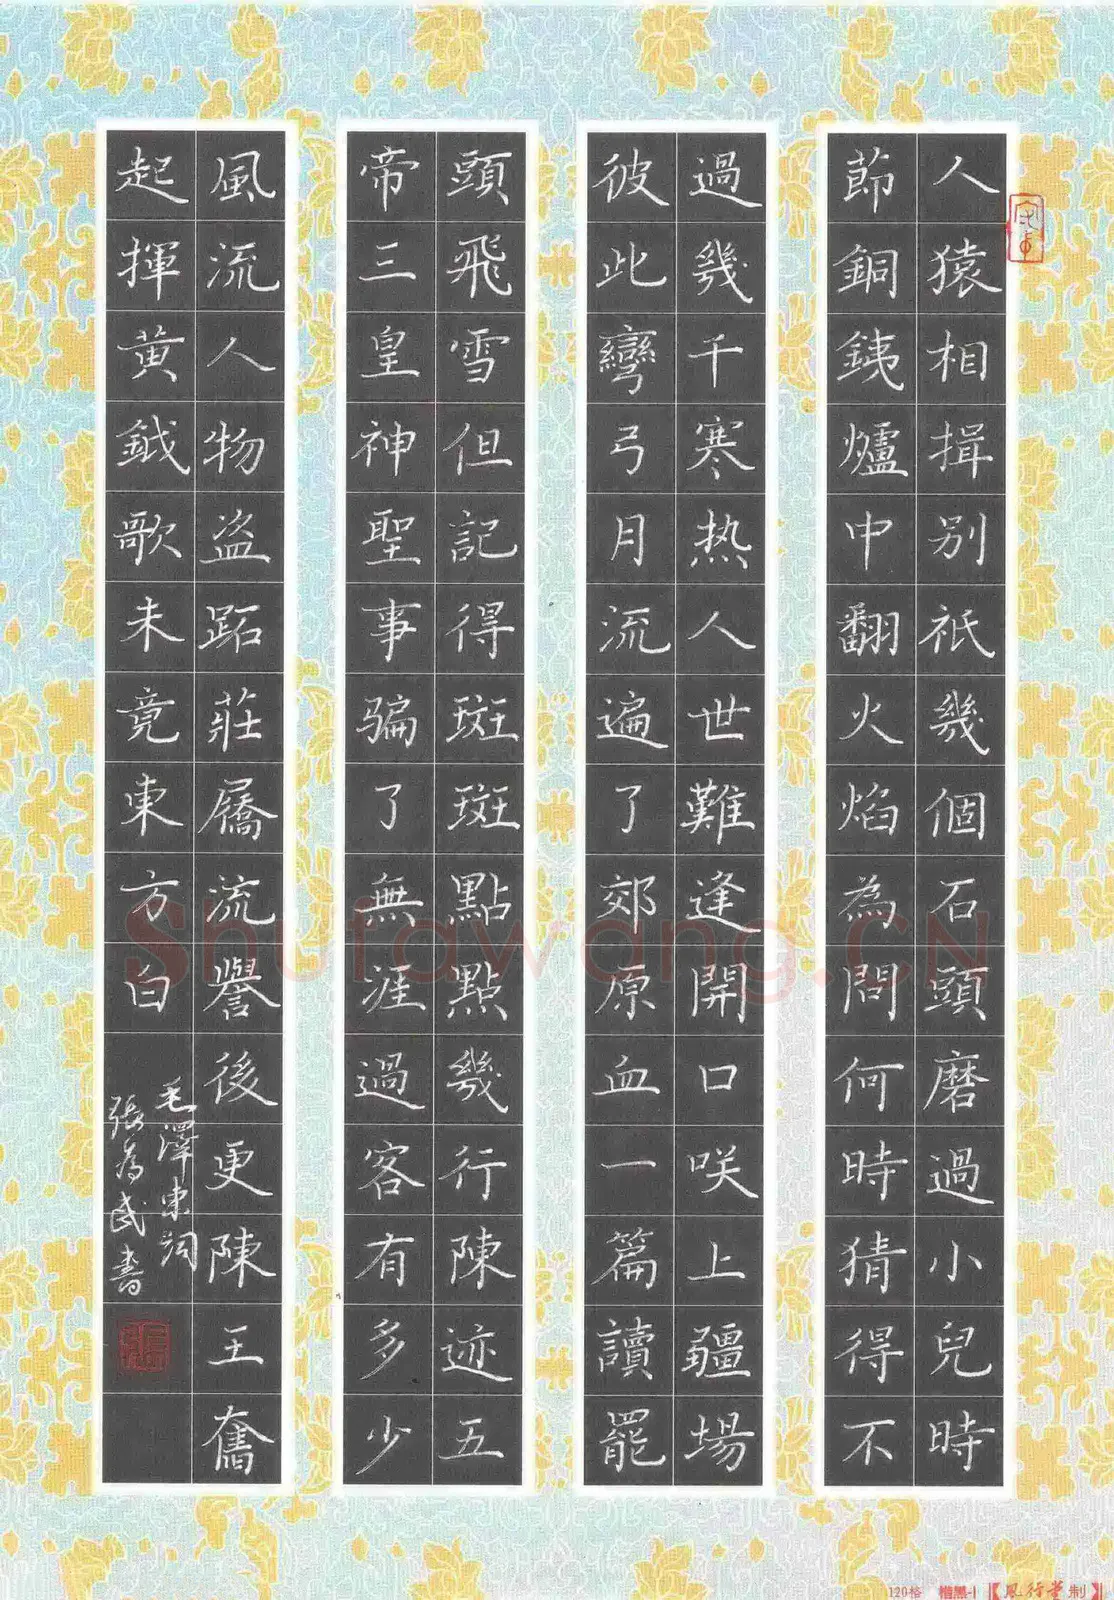 人猿相揖别祇幾個石頭磨過小兒時
節銅銕爐中翻火焰為問何時猜得不
過幾千寒热人世難逢開口咲上疆場
彼此彎弓月流遍了郊原血一篇讀罷
頭飛雪但記得斑斑點點幾行陳迹五
帝三皇神聖事骗了無涯過客有多少
風流人物盗跖莊屩流譽後更陳王奮
起揮黄鉞歌未竟東方白
毛澤東詞
張為民書
Shufawang.CN
120格 楷黑-1 【風行堂制】